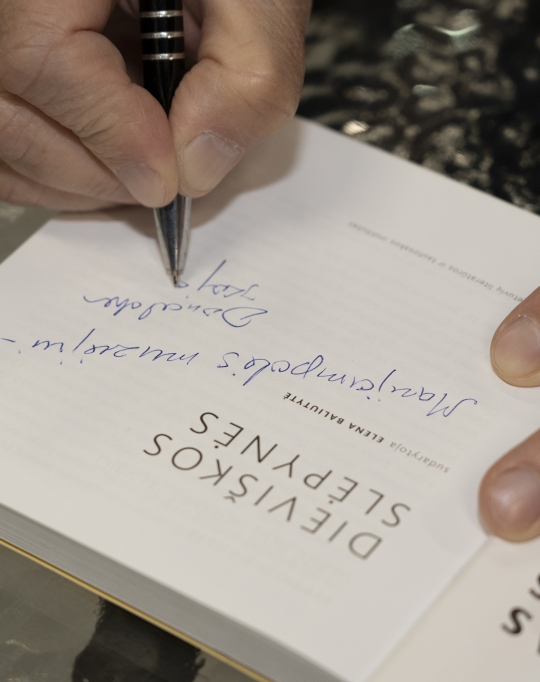 DIEVIŠKOS
SLĖPYNĖS
sudarytoja ELENA BALIUTYTĖ
Marijampolės muziejui -
Lietuvių literatūros ir tautosakos institutas